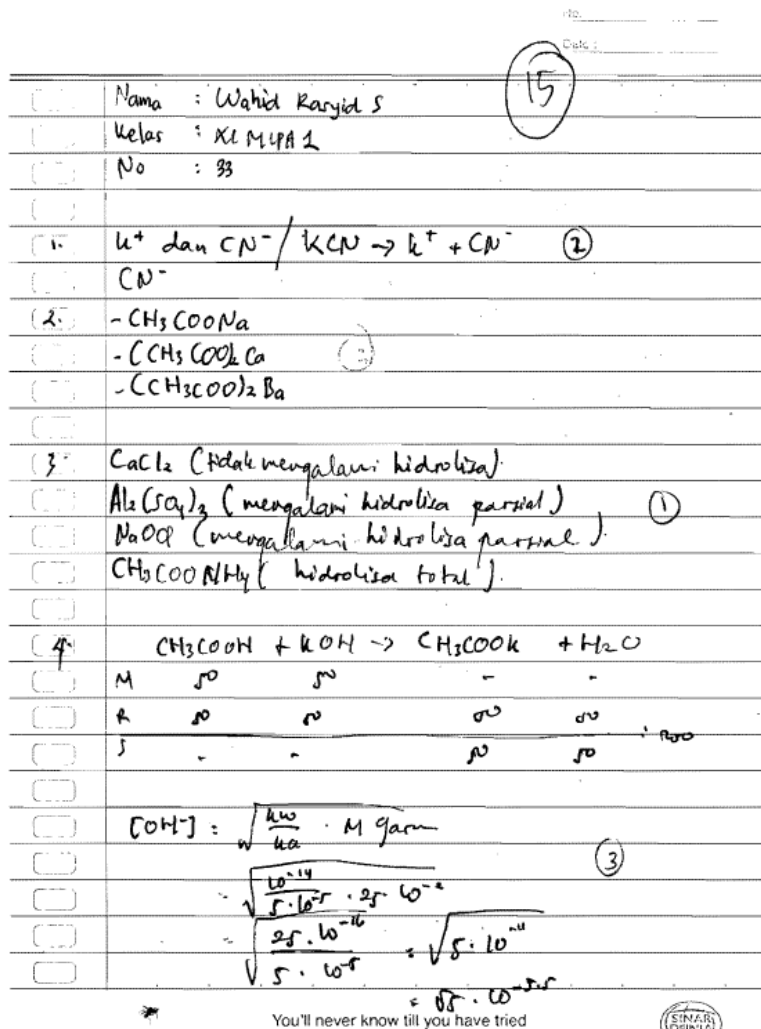 No.
Date :
15
Nama : Wahid Rasyid S
Kelas : XI MIPA 1
No : 33
1. K⁺ dan CN⁻ / KCN → K⁺ + CN⁻ ②
CN⁻
2. - CH₃COONa
- (CH₃COO)₂Ca
- (CH₃COO)₂Ba
3. CaCl₂ (tidak mengalami hidrolisa).
Al₂(SO₄)₃ (mengalami hidrolisa parsial) ①
NaOCl (mengalami hidrolisa parsial).
CH₃COONH₄ (hidrolisa total).
4. CH₃COOH + KOH → CH₃COOK + H₂O
M 50 50 - -
R 50 50 50 50
S - - 50 50 : 200
[OH⁻] = √(kw/ka · M garam
③
= √(10⁻¹⁴/5·10⁻⁵ · 25·10⁻²
= √(25·10⁻¹⁶/5·10⁻⁵ = √5·10⁻¹¹
= √5 · 10⁻⁵·⁵
You'll never know till you have tried
SINAR